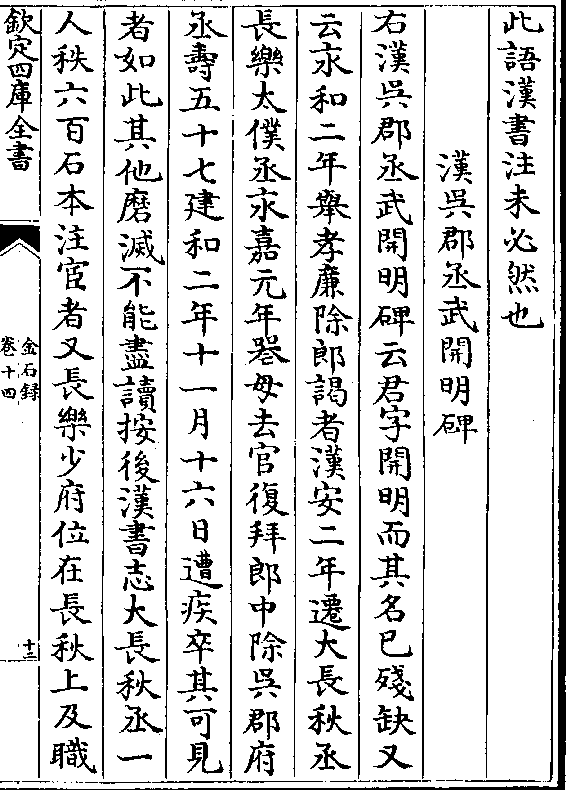 此語漢書注未必然也
漢吳郡丞武開明碑
右漢吳郡丞武開明碑云君字開明而其名已殘缺又
云永和二年舉孝廉除郎謁者漢安二年遷大長秋丞
長樂太僕丞永嘉元年喪母去官復拜郎中除吳郡府
丞壽五十七建和二年十一月十六日遭疾卒其可見
者如此其他磨滅不能盡讀按後漢書志大長秋丞一
人秩六百石本注宦者又長樂少府位在長秋上及職
欽定四庫全書
金石録
卷十四
十三